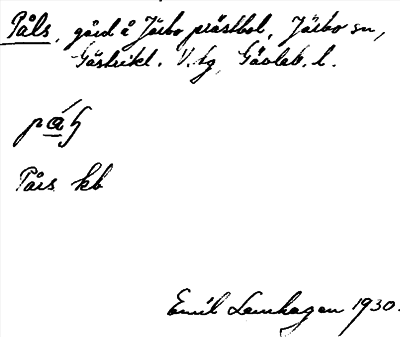 Påls, gård å Järbo prästbol, Järbo sn,
Gästrikl. V. tg, Gävleb. l.
Pårs kb
Emil Lenhagen 1930.